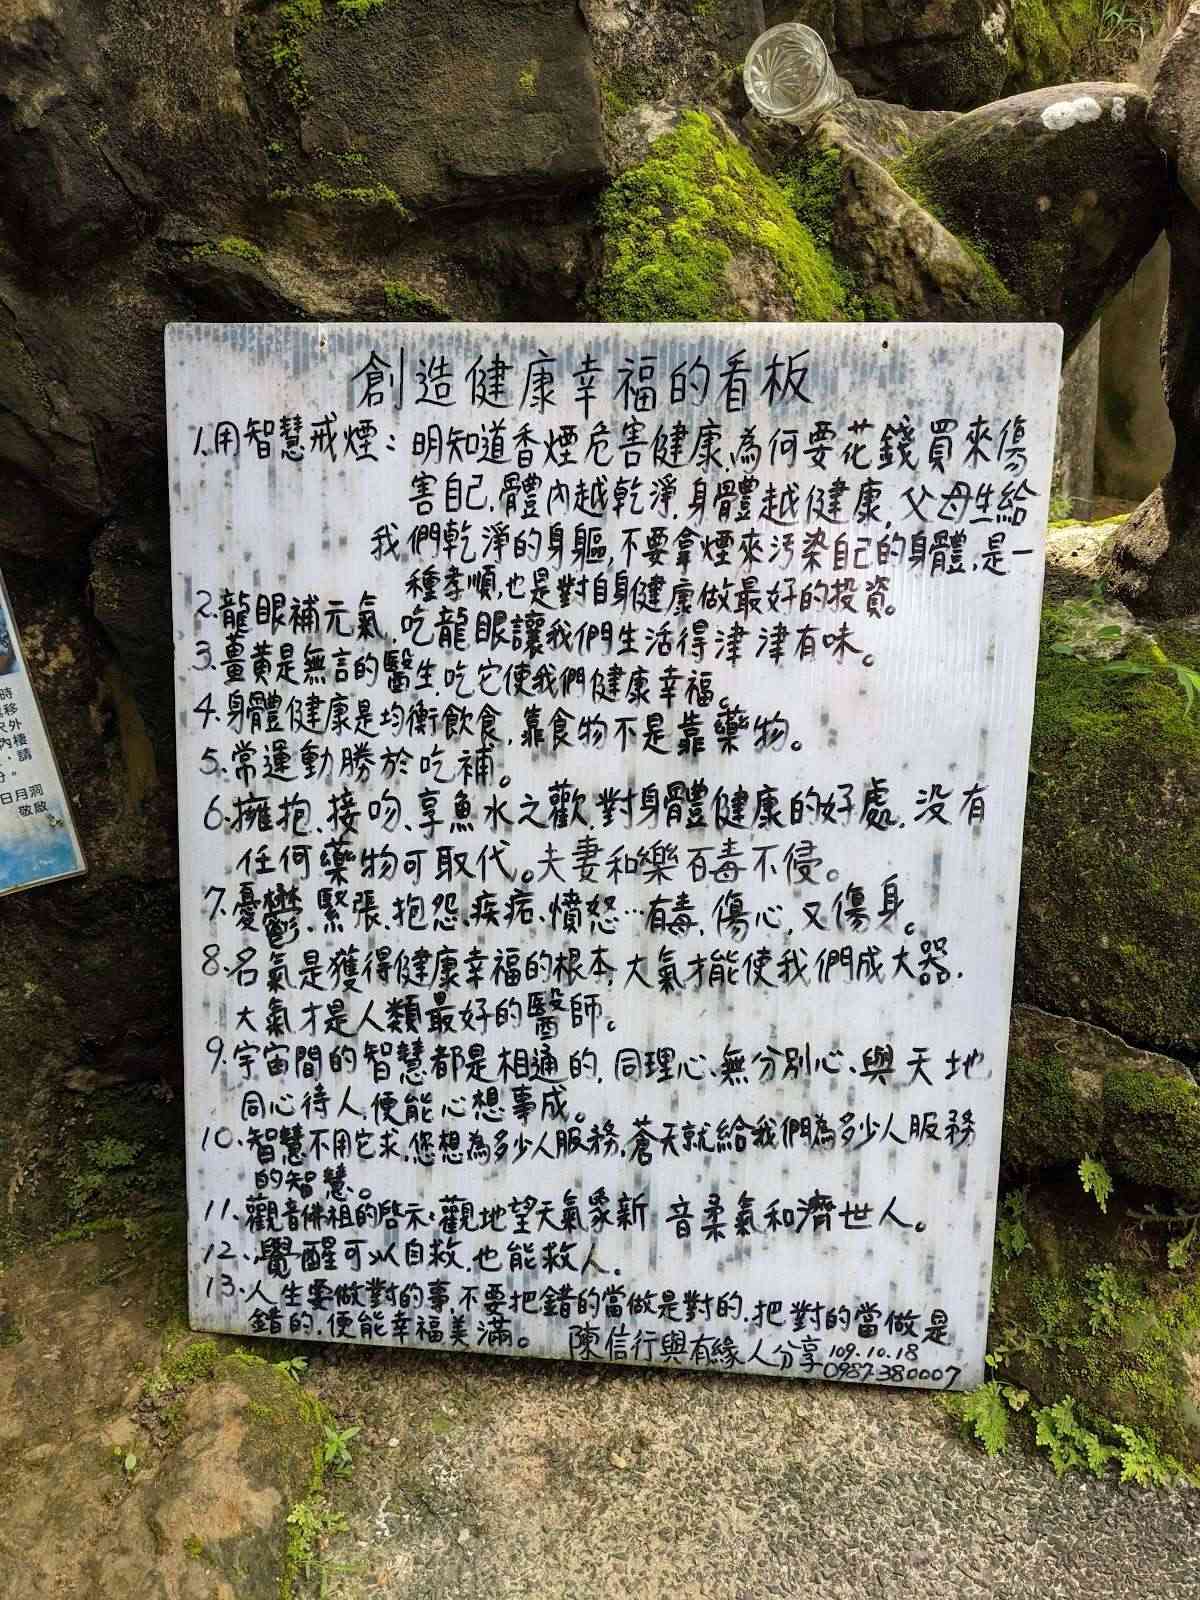 創造健康幸福的看板
1.用智慧戒煙：明知道香煙危害健康,為何要花錢買來傷
害自己,體內越乾淨,身體越健康,父母生給
我們乾淨的身軀,不要拿煙來汚染自己的身體,是一
種孝順,也是對自身健康做最好的投資。
2.龍眼補元氣,吃龍眼讓我們生活得津津有味。
3.薑黃是無言的醫生,吃它使我們健康幸福。
4.身體健康是均衡飲食,靠食物不是靠藥物。
5.常運動勝於吃補。
6.擁抱、接吻、享魚水之歡,對身體健康的好處,没有
任何藥物可取代。夫妻和樂百毒不侵。
7.憂鬱、緊張、抱怨、疾病、憤怒…有毒,傷心,又傷身。
8.名氣是獲得健康幸福的根本,大氣才能使我們成大器,
大氣才是人類最好的醫師。
9.宇宙間的智慧都是相通的,同理心、無分別心、與天地
同心待人,便能心想事成。
10.智慧不用它求,您想為多少人服務,蒼天就給我們為多少人服務
的智慧。
11.觀音佛祖的啓示:觀地望天氣象新 音柔氣和濟世人。
12.覺醒可以自救,也能救人.
13.人生要做對的事,不要把錯的當做是對的,把對的當做是
錯的,便能幸福美滿。 陳信行與有緣人分享109.10.18
0987-380007
時
移
尺外
內棲
、請
分。
日月洞
敬啟